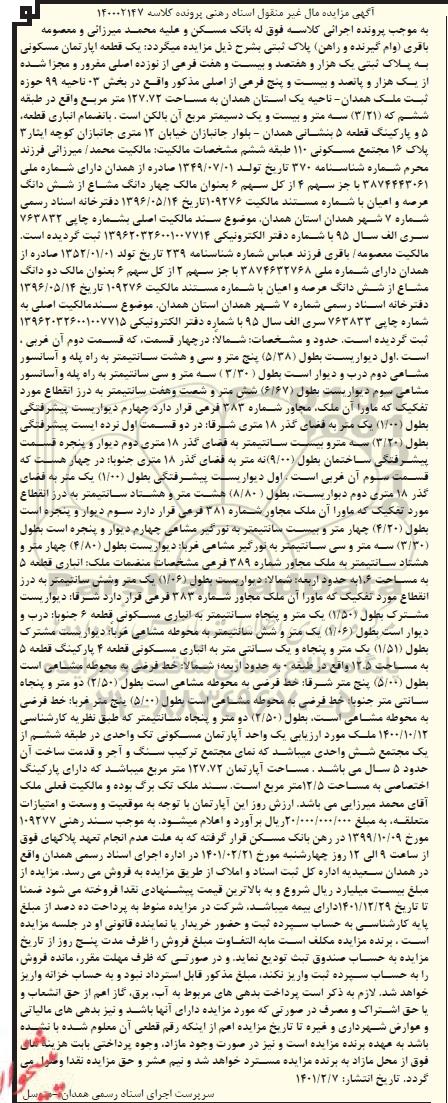 آگهی مزایده مال غیر منقول اسناد رهنی پرونده کلاسه ۱۴۰۰۰۲۱۴۷
به موجب پرونده اجرائی کلاسه فوق له بانک مسکن و علیه محمد میرزائی و معصومه
باقری (وام گیرنده و راهن) پلاک ثبتی بشرح ذیل مزایده میگردد: یک قطعه اپارتمان مسکونی
به پلاک ثبتی یک هزار و هفتصد و بیست و هفت فرعی از نوزده اصلی مفروز و مجزا شده
از یک هزار و پانصد و بیست و پنج فرعی از اصلی مذکور واقع در بخش ۰۳ ناحیه ۹۹ حوزه
ثبت ملک همدان- ناحیه یک استان همدان به مساحت ۱۲۷.۷۲ متر مربع واقع در طبقه
ششم که (۳/۲۱) سه متر و بیست و یک دسیمتر مربع آن بالکن است . بانضمام انباری قطعه،
۵ و پارکینگ قطعه ۵ بنشانی همدان - بلوار جانبازان خیابان ۱۲ متری جانبازان کوچه ایثار۳
پلاک ۱۶ مجتمع مسکونی ۱۱۰ طبقه ششم مشخصات مالکیت: مالکیت محمد/ میرزائی فرزند
محرم شماره شناسنامه ۳۷۰ تاریخ تولد ۱۳۴۹/۰۷/۰۱ صادره از همدان دارای شماره ملی
۳۸۷۴۴۴۳۰۶۱ با جز سهم ۴ از کل سهم ۶ بعنوان مالک چهار دانگ مشاع از شش دانگ
عرصه و اعیان با شماره مستند مالکیت ۱۰۹۲۷۶تاریخ ۱۳۹۶/۰۵/۱۴ دفترخانه اسناد رسمی
شماره ۷ شهر همدان استان همدان. موضوع سند مالکیت اصلی بشماره چاپی ۷۶۳۸۳۲
سری الف سال ۹۵ با شماره دفتر الکترونیکی ۱۳۹۶۲۰۳۲۶۰۰۱۰۰۷۷۱۴ ثبت گردیده است.
مالکیت معصومه/ باقری فرزند عباس شماره شناسنامه ۲۳۹ تاریخ تولد ۱۳۵۲/۰۱/۰۱ صادره از
همدان دارای شماره ملی ۳۸۷۴۶۳۲۷۶۸ با جز سهم ۲ از کل سهم ۶ بعنوان مالک دو دانگ
مشاع از شش دانگ عرصه و اعیان با شماره مستند مالکیت ۱۰۹۲۷۶ تاریخ ۱۳۹۶/۰۵/۱۴
دفترخانه اسناد رسمی شماره ۷ شهر همدان استان همدان. موضوع سندمالکیت اصلی به
شماره چاپی ۷۶۳۸۳۳ سری الف سال ۹۵ با شماره دفتر الکترونیکی ۱۳۹۶۲۰۳۲۶۰۰۱۰۰۷۷۱۵
ثبت گردیده است. حدود و مشخصات: شمالا: درچهار قسمت، که قسمت دوم آن غربی ،
است .اول دیواریست بطول (۵/۳۸) پنج متر و سی و هشت سانتیمتر به راه پله و آسانسور
مشاعی دوم درب و دیوار است بطول (۳/۳۰) سه متر و سی سانتیمتر به راه پله وآسانسور
مشاعی سوم دیواریست بطول (۶/۶۷) شش متر و شصت وهفت سانتیمتر به درز انقطاع مورد
تفکیک که ماورا آن ملک، مجاور شماره ۳۸۳ فرعی قرار دارد چهارم دیواریست پیشرفتگی
بطول (۱/۰۰) یک متر به فضای گذر ۱۸ متری شرقا: در دو قسمت اول نرده ایست پیشرفتگی
بطول (۳/۲۰) سه متر و بیست سانتیمتر به فضای گذر ۱۸ متری دوم دیوار و پنجره قسمت
پیشرفتگی ساختمان بطول (۹/۰۰)نه متر به فضای گذر ۱۸ متری جنوبا: در چهار هست که
قسمت سوم آن غربی است . اول دیواریست پیشرفتگی بطول (۱/۰۰) یک متر به فضای
گذر ۱۸ متری دوم دیواریست، بطول (۸/۸۰) هشت متر و هشتاد سانتیمتر به درز انقطاع
مورد تفکیک که ماورا آن ملک مجاور شماره ۳۸۱ فرعی قرار دارد سوم دیوار و پنجره است
بطول (۴/۲۰) چهار متر و بیست سانتیمتر به نورگیر مشاعی چهارم دیوار و پنجره است بطول
(۳/۳۰) سه متر و سی سانتیمتر به نورگیر مشاعی غربا: دیواریست بطول (۴/۸۰) چهار متر و
هشتاد سانتیمتر به ملک مجاور شماره ۳۸۹ فرعی مشخصات منضمات ملک: انباری قطعه ۵
به مساحت ۱.۶به حدود اربعه: شمالا: دیواریست بطول (۱/۰۶) یک متر وشش سانتیمتر به درز
انقطاع مورد تفکیک که ماورا آن ملک مجاور شماره ۳۸۳ فرعی قرار دارد شرقا: دیواریست
مشترک بطول (۱/۵۰) یک متر و پنجاه سانتیمتر به انباری مسکونی قطعه ۶ جنوبا: درب و
دیوار است بطول (۱/۰۶) یک متر و شش سانتیمتر به محوطه مشاعی غربا: دیواریست مشترک
بطول (۱/۵۱) یک متر و پنجاه و یک سانتی متر به انباری مسکونی قطعه ۴ پارکینگ قطعه ۵
به مساحت ۱۲.۵ واقع در طبقه ۰ به حدود اربعه؛ شمالا: خط فرضی به محوطه مشاعی است
بطول (۵/۰۰) پنج متر شرقا: خط فرضی به محوطه مشاعی است بطول (۲/۵۰) دو متر و پنجاه
سانتی متر جنوبا: خط فرضی به محوطه مشاعی است بطول (۵/۰۰) پنج متر غربا: خط فرضی
به محوطه مشاعی است، بطول (۲/۵۰) دو متر و پنجاه سانتیمتر که طبق نظریه کارشناسی
۱۴۰۰/۱۰/۱۲ ملک مورد ارزیابی یک واحد آپارتمان مسکونی تک واحدی در طبقه ششم از
یک مجتمع شش واحدی میباشد که نمای مجتمع ترکیب سنگ و آجر و قدمت ساخت آن
حدود ۵ سال می باشد . مساحت آپارتمان ۱۲۷.۷۲ متر مربع میباشد که دارای پارکینگ
اختصاصی به مساحت ۱۲/۵متر مربع است. سند ملک تک برگ بوده و مالکیت فعلی ملک
آقای محمد میرزایی می باشد. ارزش روز این آپارتمان با توجه به موقعیت و وسعت و امتیازات
متعلقه، به مبلغ ۲۰/۰۰۰/۰۰۰/۰۰۰ریال برآورد و اعلام میشود. به موجب سند رهنی ۱۰۹۲۷۷
مورخ ۱۳۹۹/۱۰/۰۹ در رهن بانک مسکن قرار گرفته که به علت عدم انجام تعهد پلاکهای فوق
از ساعت ۹ الی ۱۲ روز چهارشنبه مورخ ۱۴۰۱/۰۲/۲۱ در اداره اجرای اسناد رسمی همدان واقع
در همدان سعیدیه اداره کل ثبت اسناد و املاک از طریق مزایده به فروش می رسد. مزایده از
مبلغ بیست میلیارد ریال شروع و به بالاترین قیمت پیشنهادی نقدا فروخته می شود ضمنا
تا تاریخ ۱۴۰۱/۱۲/۲۹دارای بیمه میباشد. شرکت در مزایده منوط به پرداخت ده دصد از مبلغ
پایه کارشناسی به حساب سپرده ثبت و حضور خریدار یا نماینده قانونی او در جلسه مزایده
است . برنده مزایده مکلف است مابه التفاوت مبلغ فروش را ظرف مدت پنج روز از تاریخ
مزایده به حساب صندوق ثبت تودیع نماید. و در صورتی که ظرف مهلت مقرر، مانده فروش
را به حساب سپرده ثبت واریز نکند، مبلغ مذکور قابل استرداد نبود و به حساب خزانه واریز
خواهد شد. لازم به ذکر است پرداخت بدهی های مربوط به آب، برق، گاز اعم از حق انشعاب و
یا حق اشتراک و مصرف در صورتی که مورد مزایده دارای آنها باشد و نیز بدهی های مالیاتی
و عوارض شهرداری و غیره تا تاریخ مزایده اعم از اینکه رقم قطعی آن معلوم شده با نشده
باشد به عهده برنده مزایده است و نیز در صورت وجود مازاد، وجوه پرداختی بابت هزینه های
فوق از محل مازاد به برنده مزایده مسترد خواهد شد و نیم عشر و حق مزایده نقدا وصول می
گردد. تاریخ انتشار: ۱۴۰۱/۲/۷
سرپرست اجرای اسناد رسمی همدان-